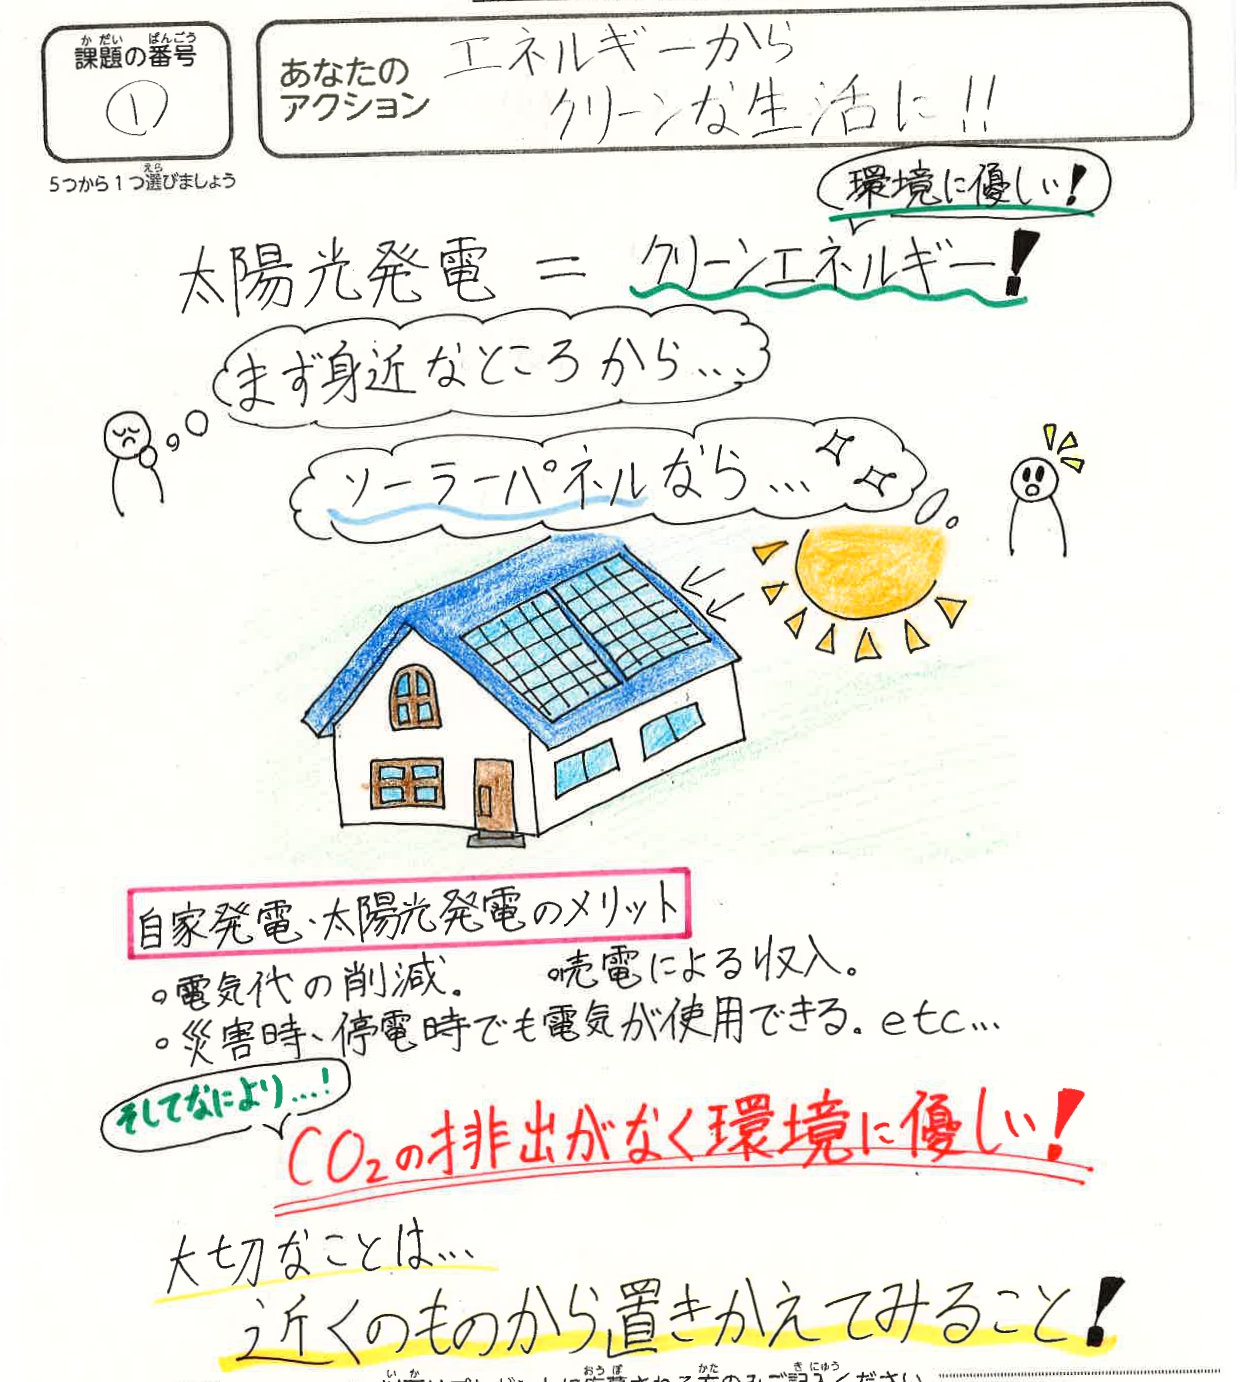 課題の番号
かだい ばんごう
①
5つから1つ選びましょう
えら
あなたの
アクション
エネルギーから
クリーンな生活に!!
環境に優しい!
太陽光発電 = クリーンエネルギー!
まず身近なところから...
ソーラーパネルなら...
自家発電・太陽光発電のメリット
。電気代の削減。 。売電による収入。
。災害時、停電時でも電気が使用できる。etc...
そしてなにより...!
CO₂の排出がなく環境に優しい!
大切なことは...
近くのものから置きかえてみること!
いか おうぼ かた きにゅう